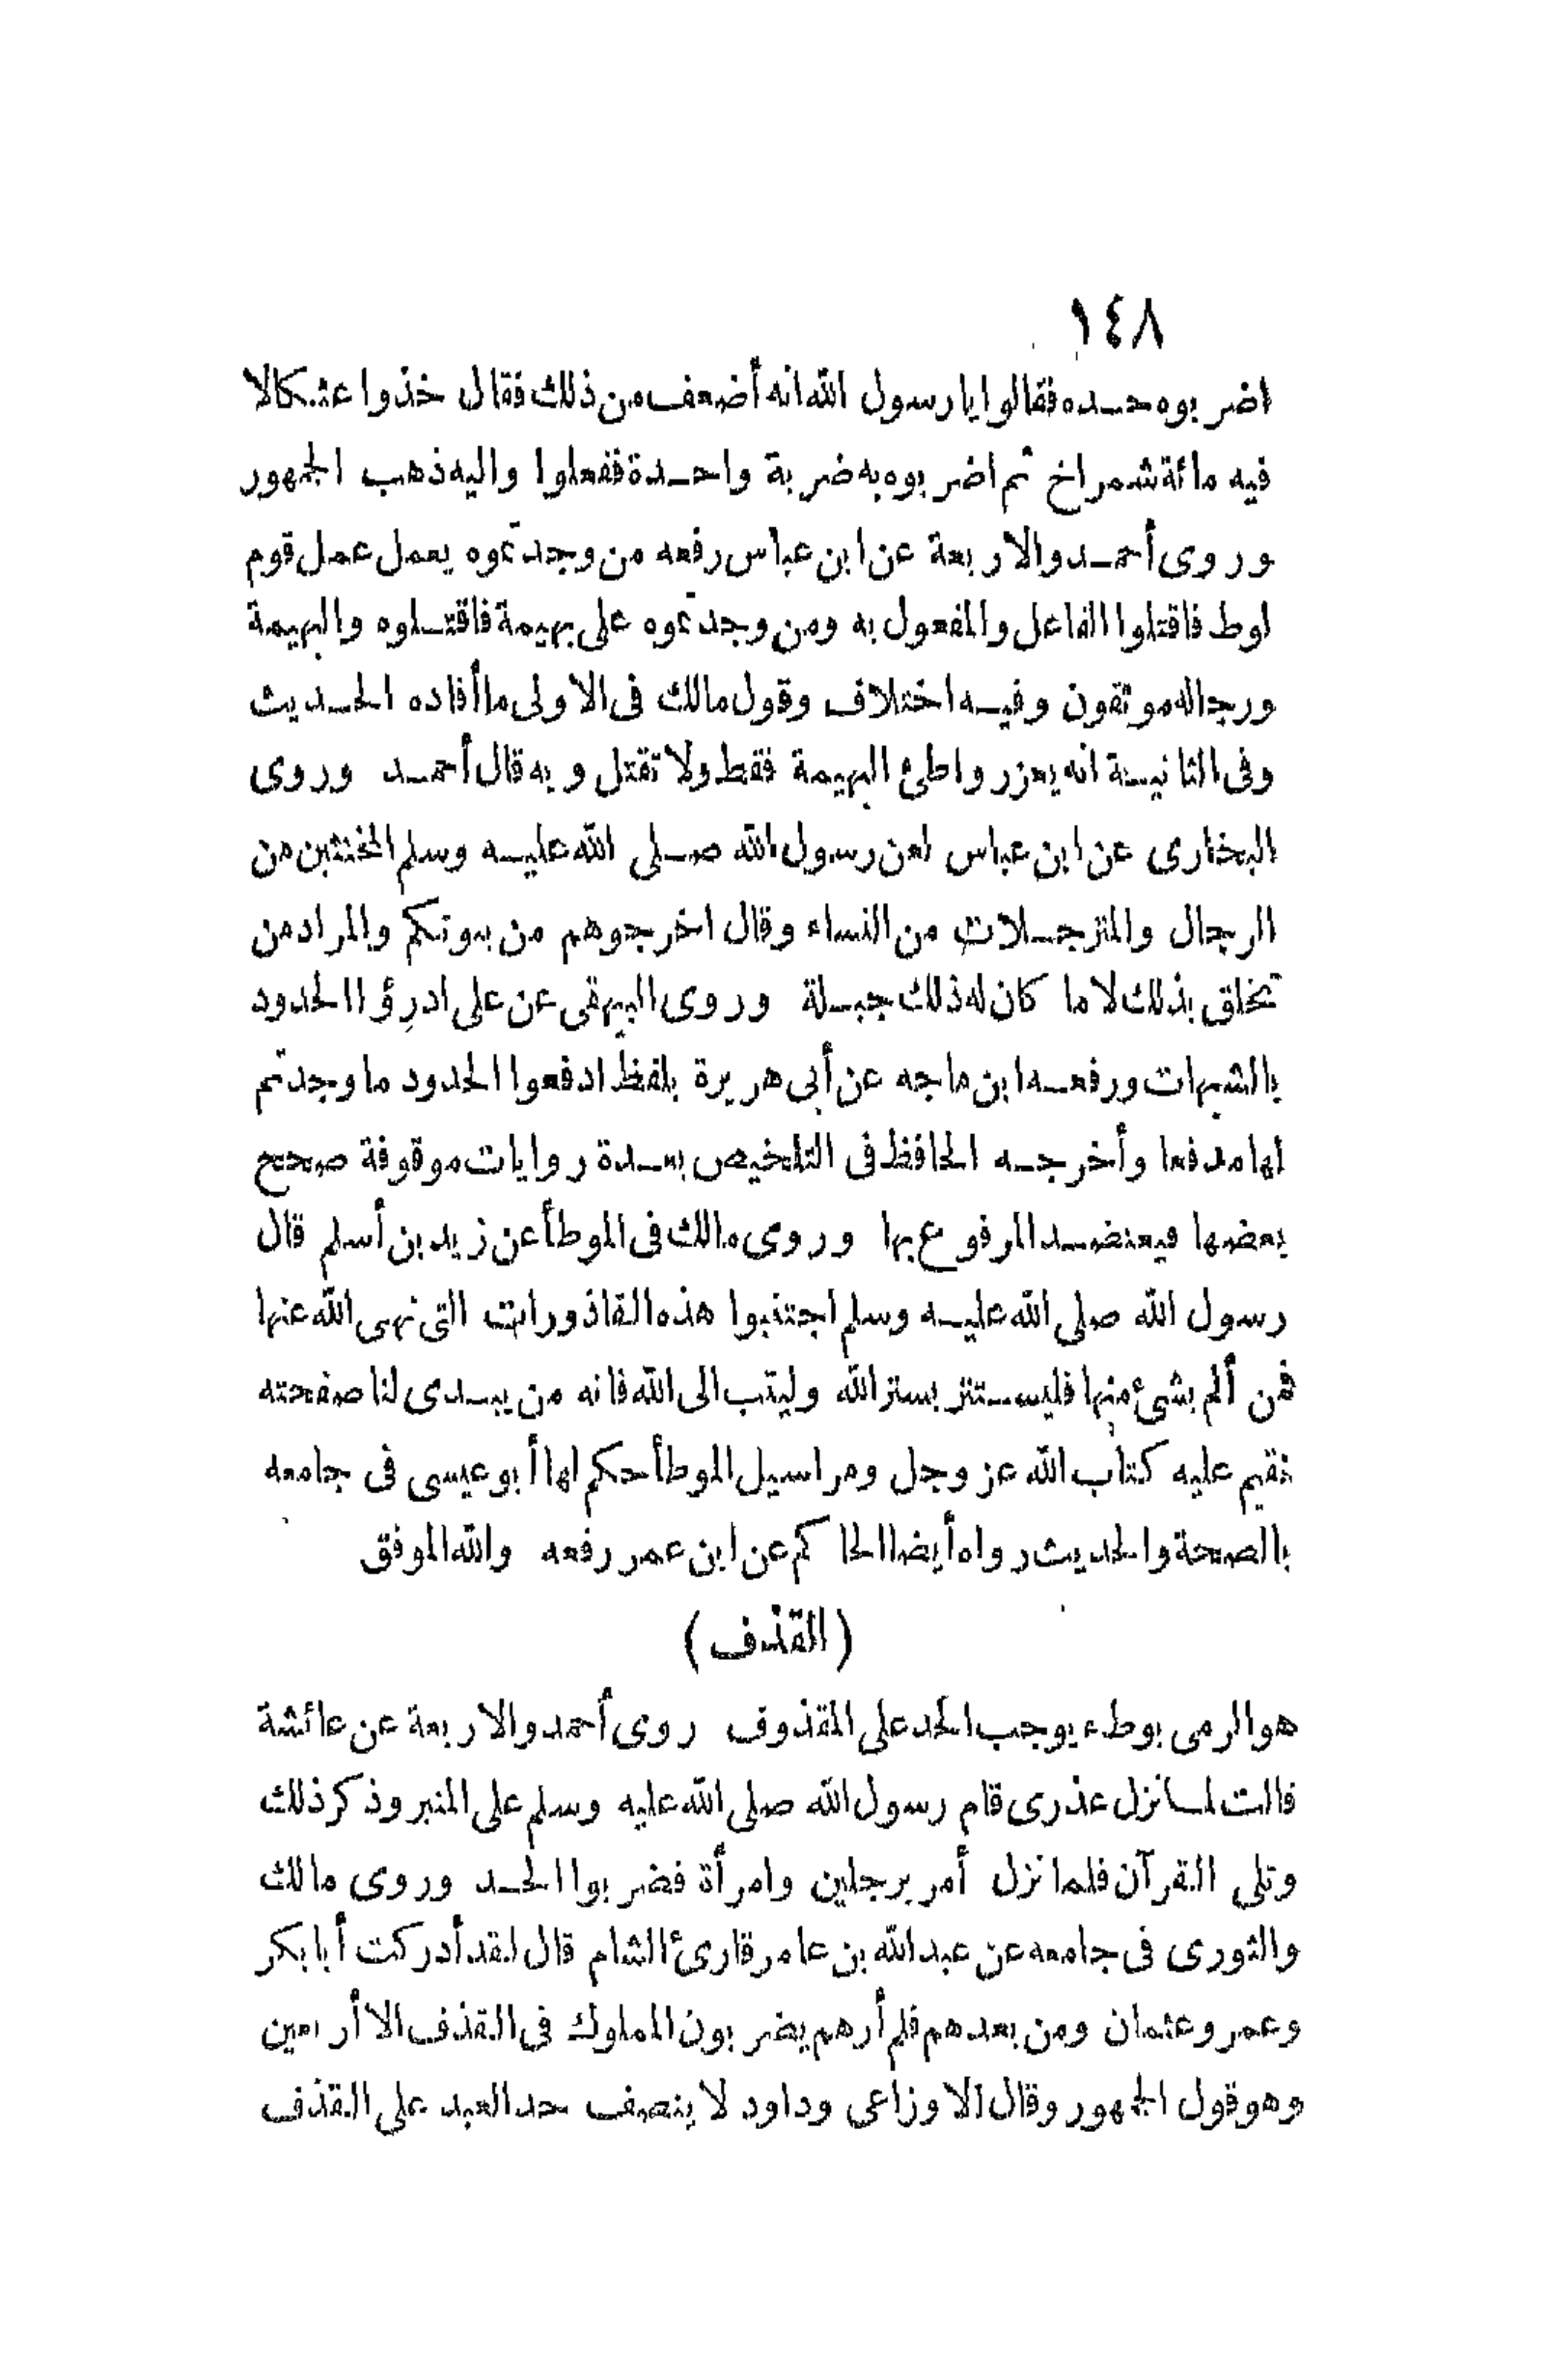 ١٤٨
اضربوه حده فقالوا يا رسول الله انه أضعف من ذلك فقال خذوا عثكالا
فيه مائة شمراخ ثم اضربوه به ضربة واحدة ففعلوا واليه ذهب الجمهور
وروى أحمد والاربعة عن ابن عباس رفعه من وجدتموه يعمل عمل قوم
لوط فاقتلوا الفاعل والمفعول به ومن وجدتموه على بهيمة فاقتلوه والبهيمة
ورجاله موثقون وفيه اختلاف وقول مالك فى الاولى ما أفاده الحديث
وفى الثانية انه يعزر واطئ البهيمة فقط ولا تقتل وبه قال أحمد وروى
البخارى عن ابن عباس لعن رسول الله صلى الله عليه وسلم المخنثين من
الرجال والمترجلات من النساء وقال اخرجوهم من بيوتكم والمراد من
تخلق بذلك لا ما كان له ذلك جبلة وروى البيهقى عن على ادرؤا الحدود
بالشبهات ورفعه ابن ماجه عن أبى هريرة بلفظ ادفعوا الحدود ما وجدتم
لها مدفعا وأخرجه الحافظ فى التلخيص بعدة روايات موقوفة صحح
بعضها فيعتضد المرفوع بها وروى مالك فى الموطأ عن زيد بن أسلم قال
رسول الله صلى الله عليه وسلم اجتنبوا هذه القاذورات التى نهى الله عنها
فمن ألم بشئ منها فليستتر بستر الله وليتب الى الله فانه من يبدى لنا صفحته
نقيم عليه كتاب الله عز وجل ومراسيل الموطأ حكم لها أبو عيسى فى جامعه
بالصحة والحديث رواه أيضا الحاكم عن ابن عمر رفعه والله الموفق
(القذف)
هو الرمى بوطء يوجب الحد على المقذوف روى أحمد والاربعة عن عائشة
قالت لما نزل عذرى قام رسول الله صلى الله عليه وسلم على المنبر وذكر ذلك
وتلى القرآن فلما نزل أمر برجلين وامرأة فضربوا الحد وروى مالك
والثورى فى جامعه عن عبد الله بن عامر قارئ الشام قال لقد أدركت أبا بكر
وعمر وعثمان ومن بعدهم فلم أرهم يضربون المملوك فى القذف الا أربعين
وهو قول الجمهور وقال الاوزاعى وداود لا ينصف حد العبد على القذف